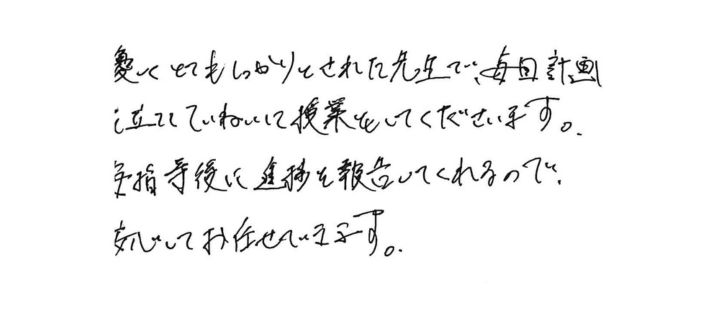 優しくとてもしっかりとされた先生で、毎回計画
に立ててていねいに授業をしてくださいます。
毎指導後に進捗を報告してくれるので、
安心してお任せしています。